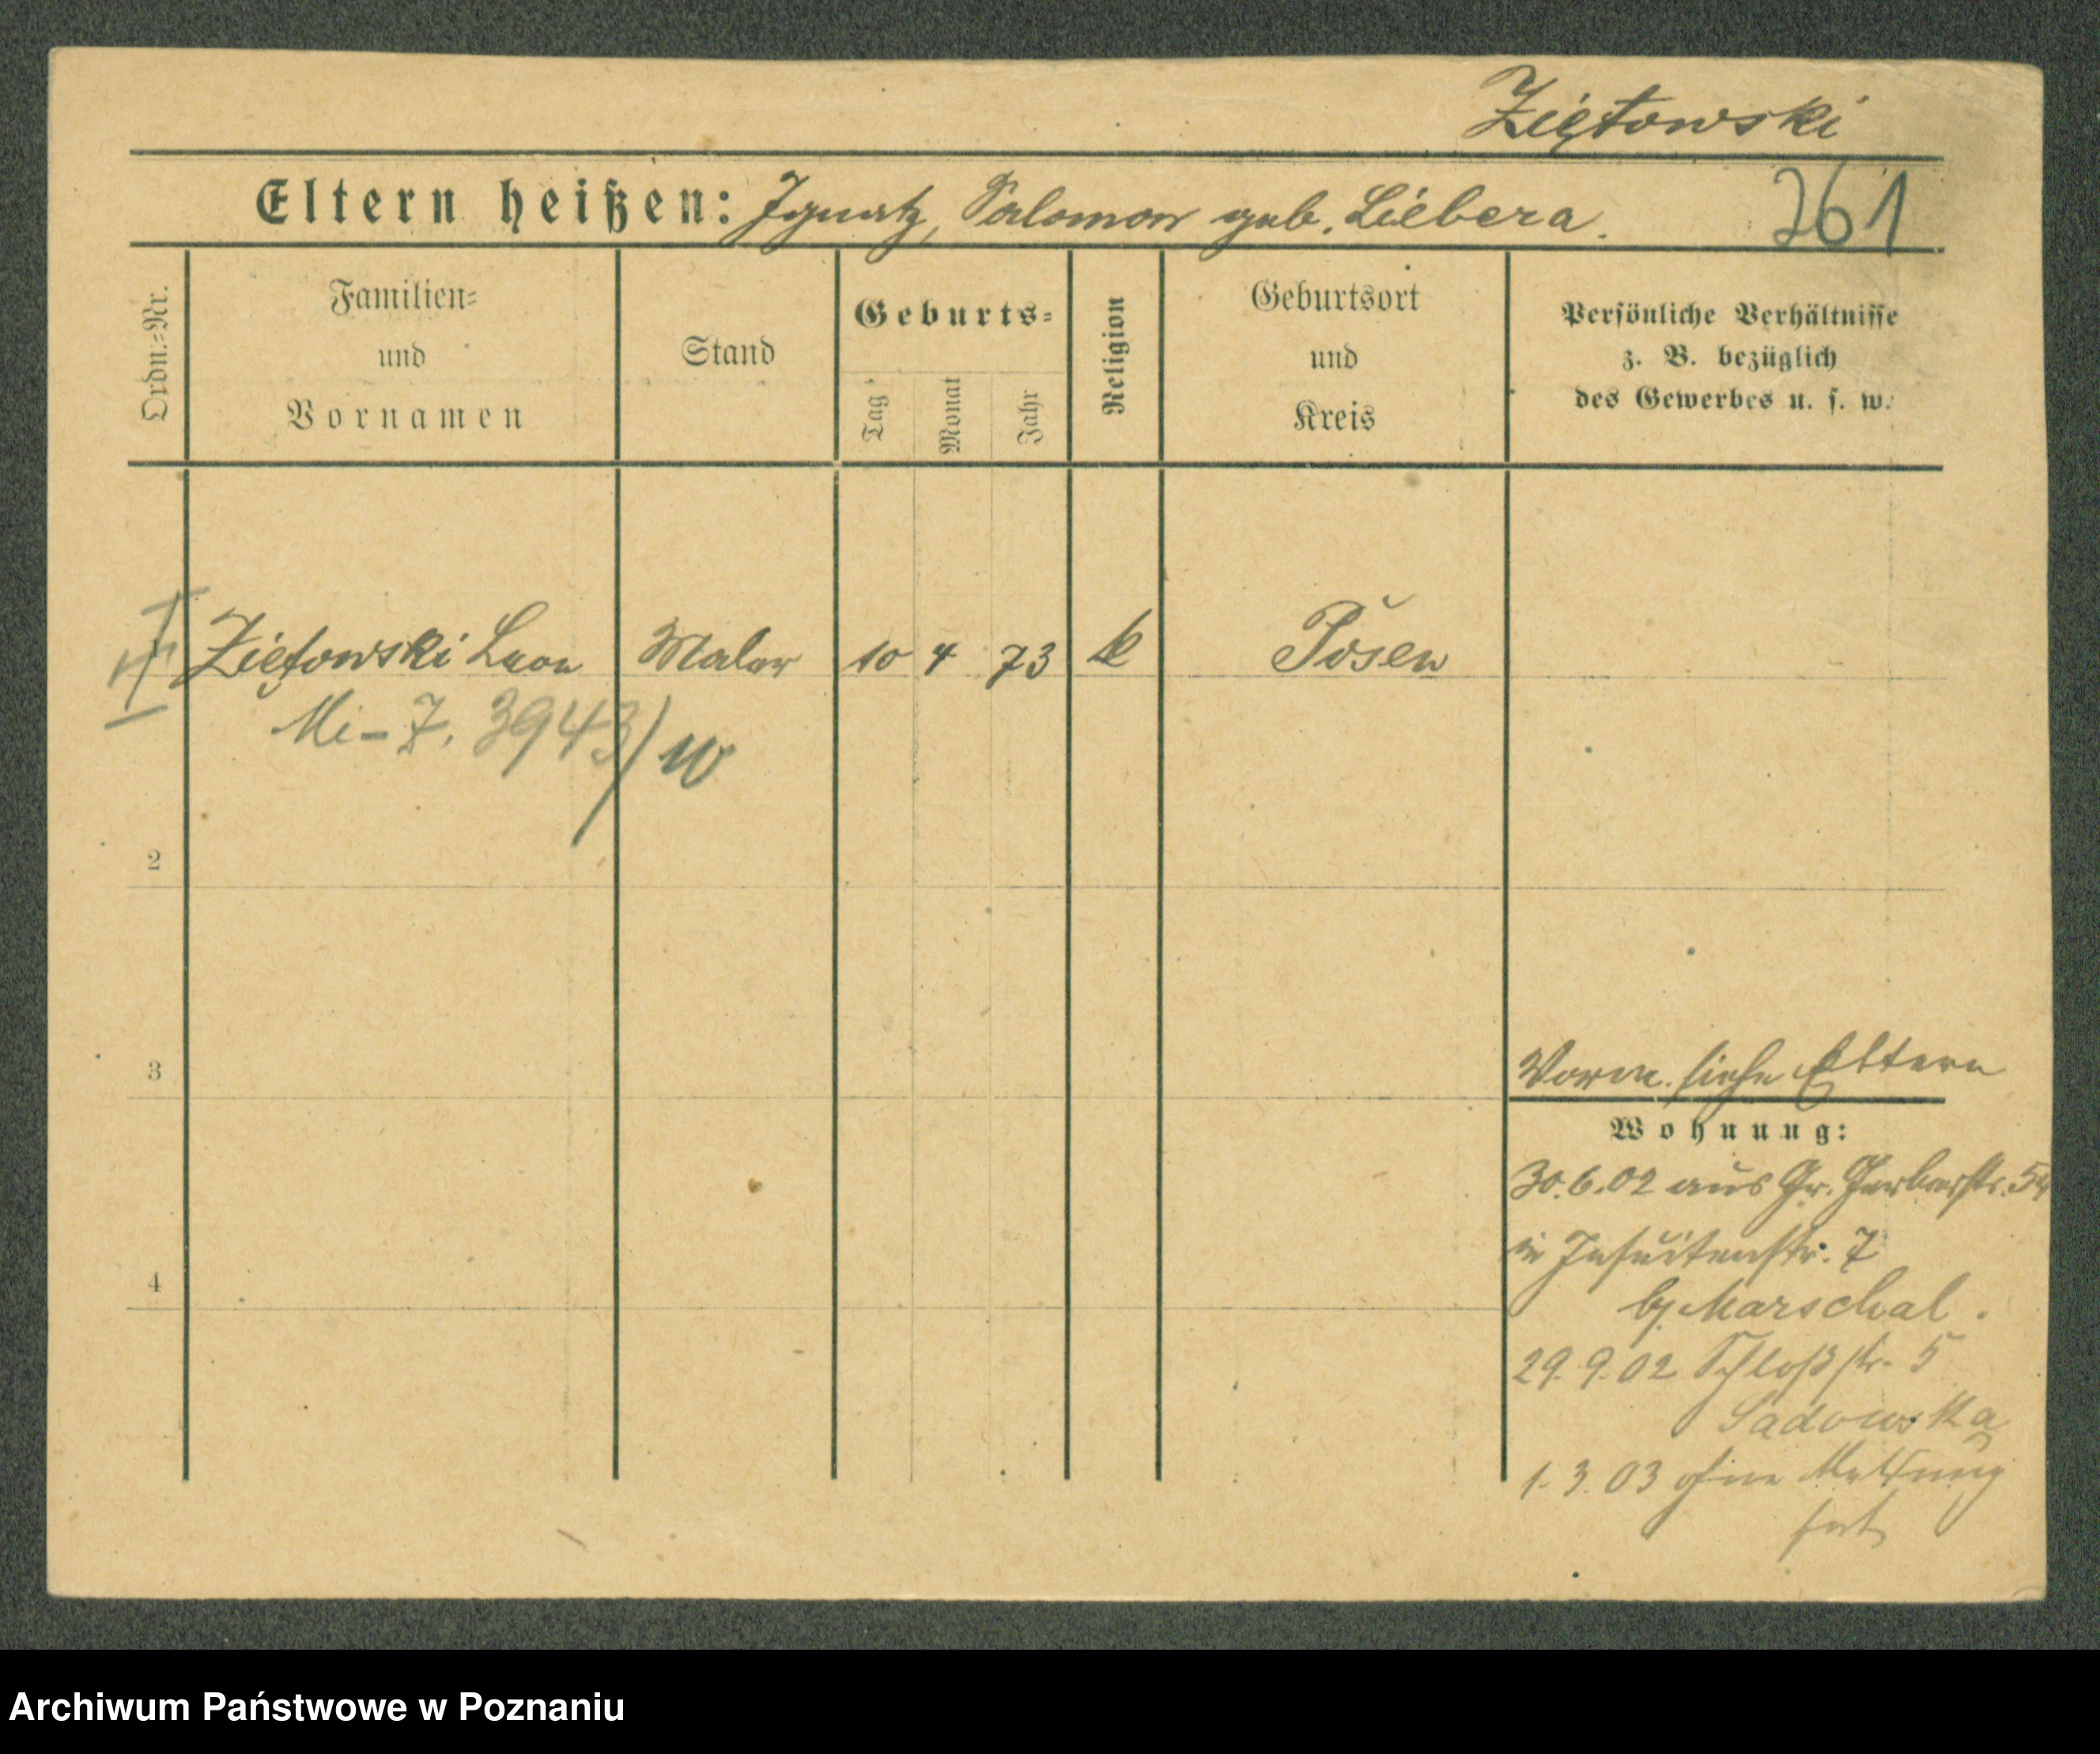 Ziętowski
Eltern heißen: Ignatz, Salomon geb. Liebera.
261
Ordn.-Nr.
Familien-
und
Vornamen
Stand
Geburts-
Tag
Monat
Jahr
Religion
Geburtsort
und
Kreis
Persönliche Verhältnisse
z. B. bezüglich
des Gewerbes u. s. w.
Ziętowski Leon Maler 10 4 73 k Posen
Mi-7. 3943/10
2
3
4
Vorm. siehe Eltern
Wohnung:
30.6.02 aus Gr. Gerberstr. 54
in Jesuitenstr. 7
bj Marschal.
29.9.02 Schloßstr. 5
Sadowska
1.3.03 ohne Meldung
fort
Archiwum Państwowe w Poznaniu